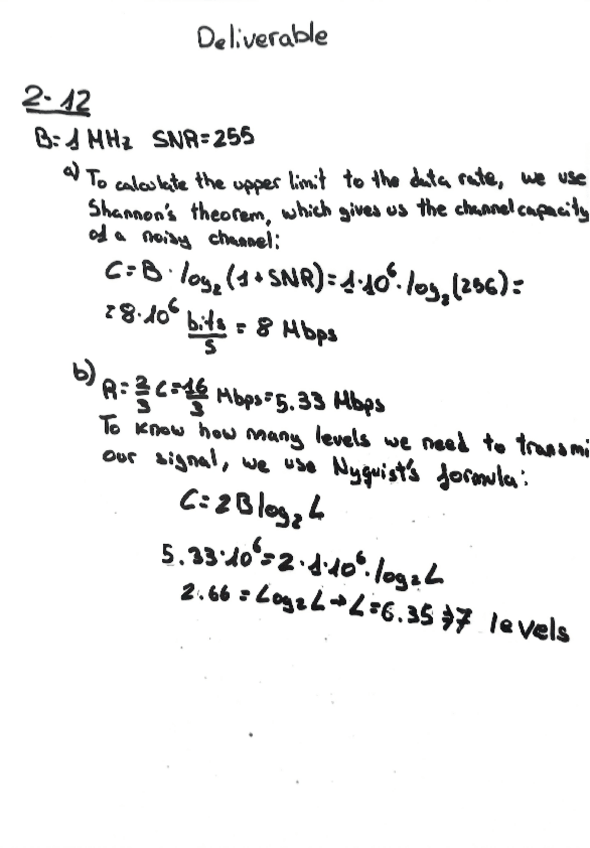 Deliverable
2-12
B=1 MHz SNR=255
a) To calculate the upper limit to the data rate, we use
Shannon's theorem, which gives us the channel capacity
of a noisy channel:
C=B·log₂(1+SNR)=1·10⁶·log₂(256)=
=8·10⁶ bits/s = 8 Mbps
b) R=2/3 C=16/3 Mbps=5.33 Mbps
To know how many levels we need to transmi
our signal, we use Nyquist's formula:
C=2Blog₂L
5.33·10⁶=2·1·10⁶·log₂L
2.66=Log₂L→L=6.35⇒7 levels